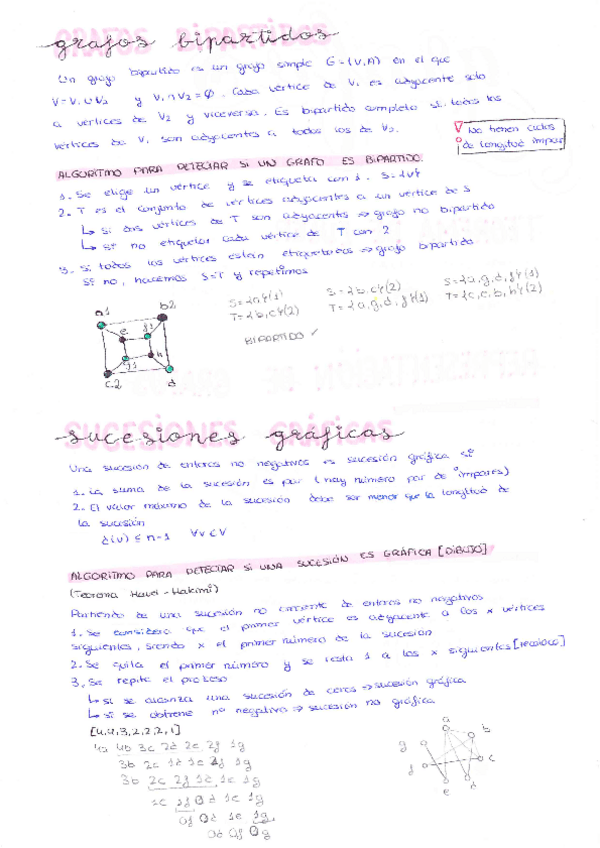 grafos bipartidos
Un grafo bipartido es un grafo simple G=(V,A) en el que
V=V₁∪V₂ y V₁∩V₂=∅. Cada vértice de V₁ es adyacente solo
a vértices de V₂ y viceversa. Es bipartido completo si todos los
vértices de V₁ son adyacentes a todos los de V₂.
No tienen ciclos
de longitud impar
ALGORITMO PARA DETECTAR SI UN GRAFO ES BIPARTIDO:
1. Se elige un vértice y se etiqueta con 1. S={v}
2. T es el conjunto de vértices adyacentes a un vértice de S
↳ Si dos vértices de T son adyacentes ⇒ grafo no bipartido
↳ Si no etiquetar cada vértice de T con 2
3. Si todos los vértices están etiquetados ⇒ grafo bipartido
Si no, hacemos S=T y repetimos
a1 b2
e f1
g1 h
c2 d
S={a}(1)
T={b,c}(2)
S={b,c}(2)
T={a,g,d,f}(1)
S={a,g,d,f}(1)
T={c,e,b,h}(2)
BIPARTIDO ✓
sucesiones gráficas
Una sucesión de enteros no negativos es sucesión gráfica si:
1. La suma de la sucesión es par (hay número par de nº impares)
2. El valor máximo de la sucesión debe ser menor que la longitud de
la sucesión
d(v) ≤ n-1 ∀v∈V
ALGORITMO PARA DETECTAR SI UNA SUCESIÓN ES GRÁFICA [DIBUJO]
(Teorema Havel-Hakimi)
Partiendo de una sucesión no creciente de enteros no negativos
1. Se considera que el primer vértice es adyacente a los x vértices
siguientes, siendo x el primer número de la sucesión
2. Se quita el primer número y se resta 1 a los x siguientes
3. Se repite el proceso
↳ si se alcanza una sucesión de ceros ⇒ sucesión gráfica
↳ si se obtiene nº negativo ⇒ sucesión no gráfica
[4,4,3,2,2,2,1]
4a 4b 3c 2d 2e 2f 1g
3b 2c 1d 1e 2f 1g
3b 2c 2f 1d 1e 1g
1c 1f 0d 1e 1g
0f 0d 1e 1g
0d 0f 0g
a
b
g
f
c
e
d